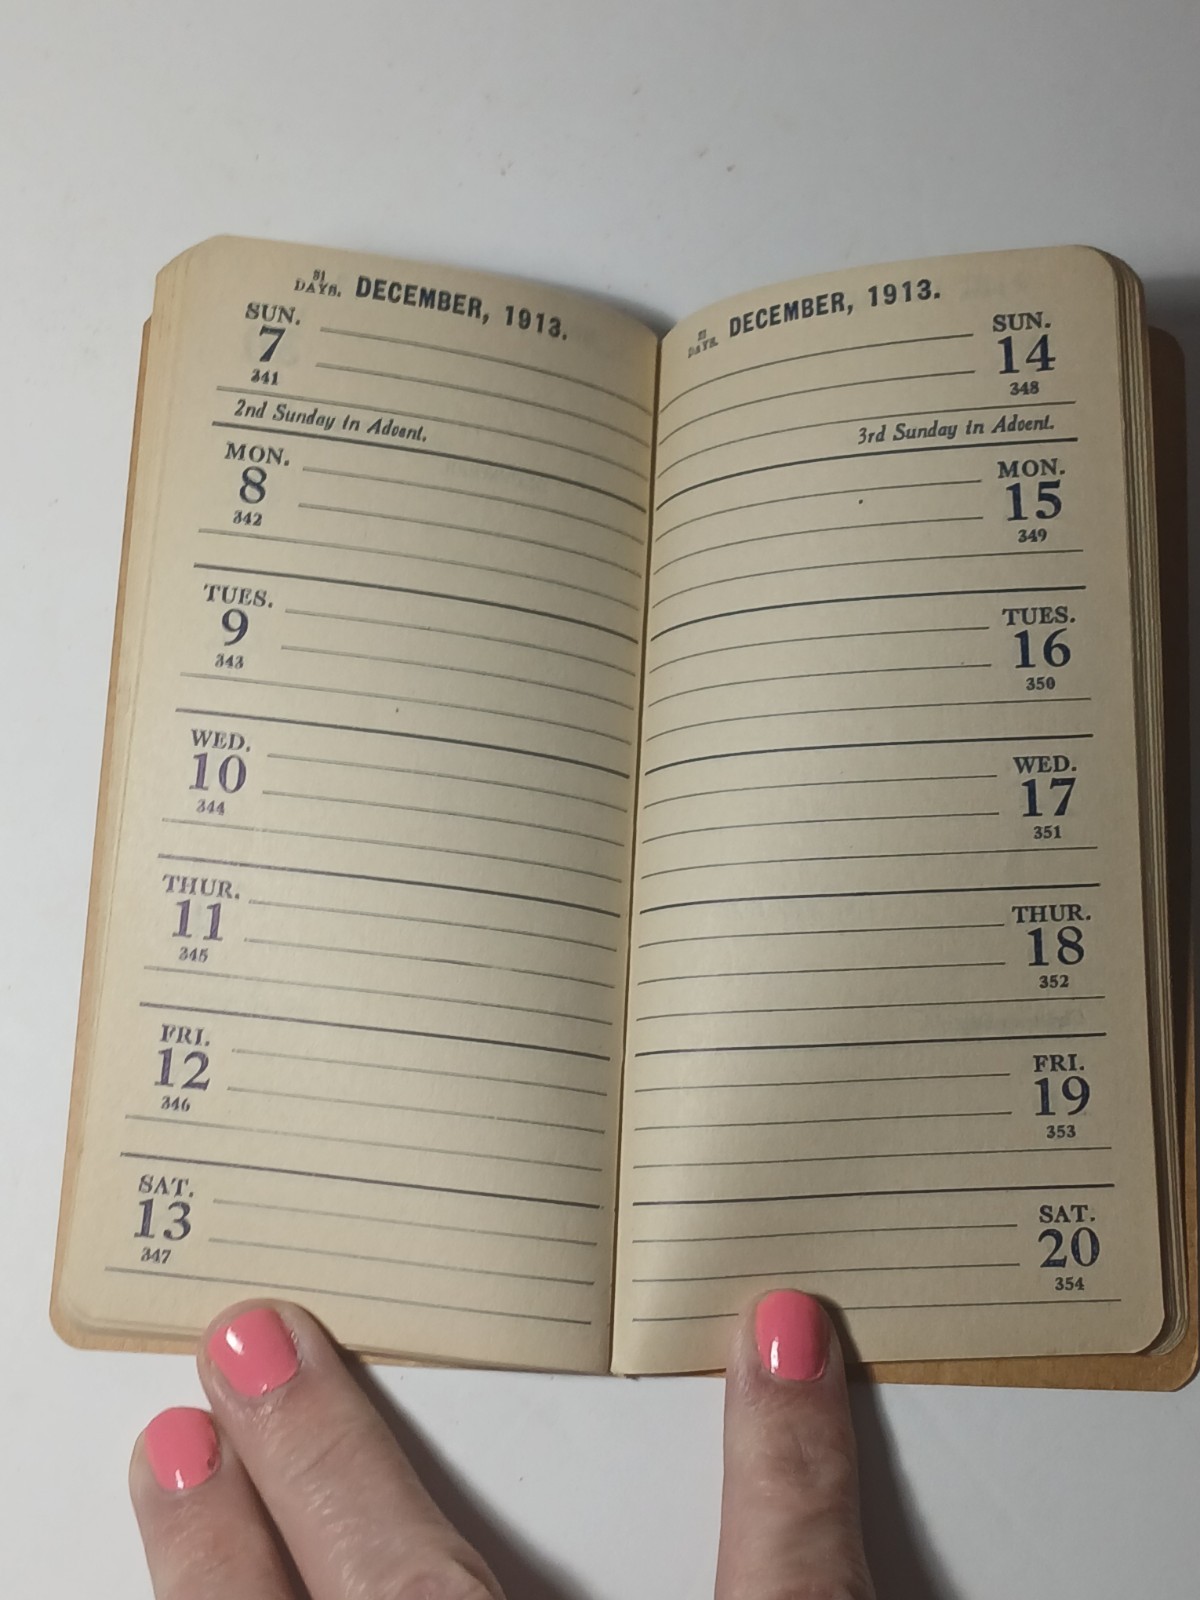 31
DAYS. DECEMBER, 1913.
SUN.
7
341
2nd Sunday in Advent.
MON.
8
342
TUES.
9
343
WED.
10
344
THUR.
11
345
FRI.
12
346
SAT.
13
347
31
DAYS. DECEMBER, 1913.
SUN.
14
348
3rd Sunday in Advent.
MON.
15
349
TUES.
16
350
WED.
17
351
THUR.
18
352
FRI.
19
353
SAT.
20
354